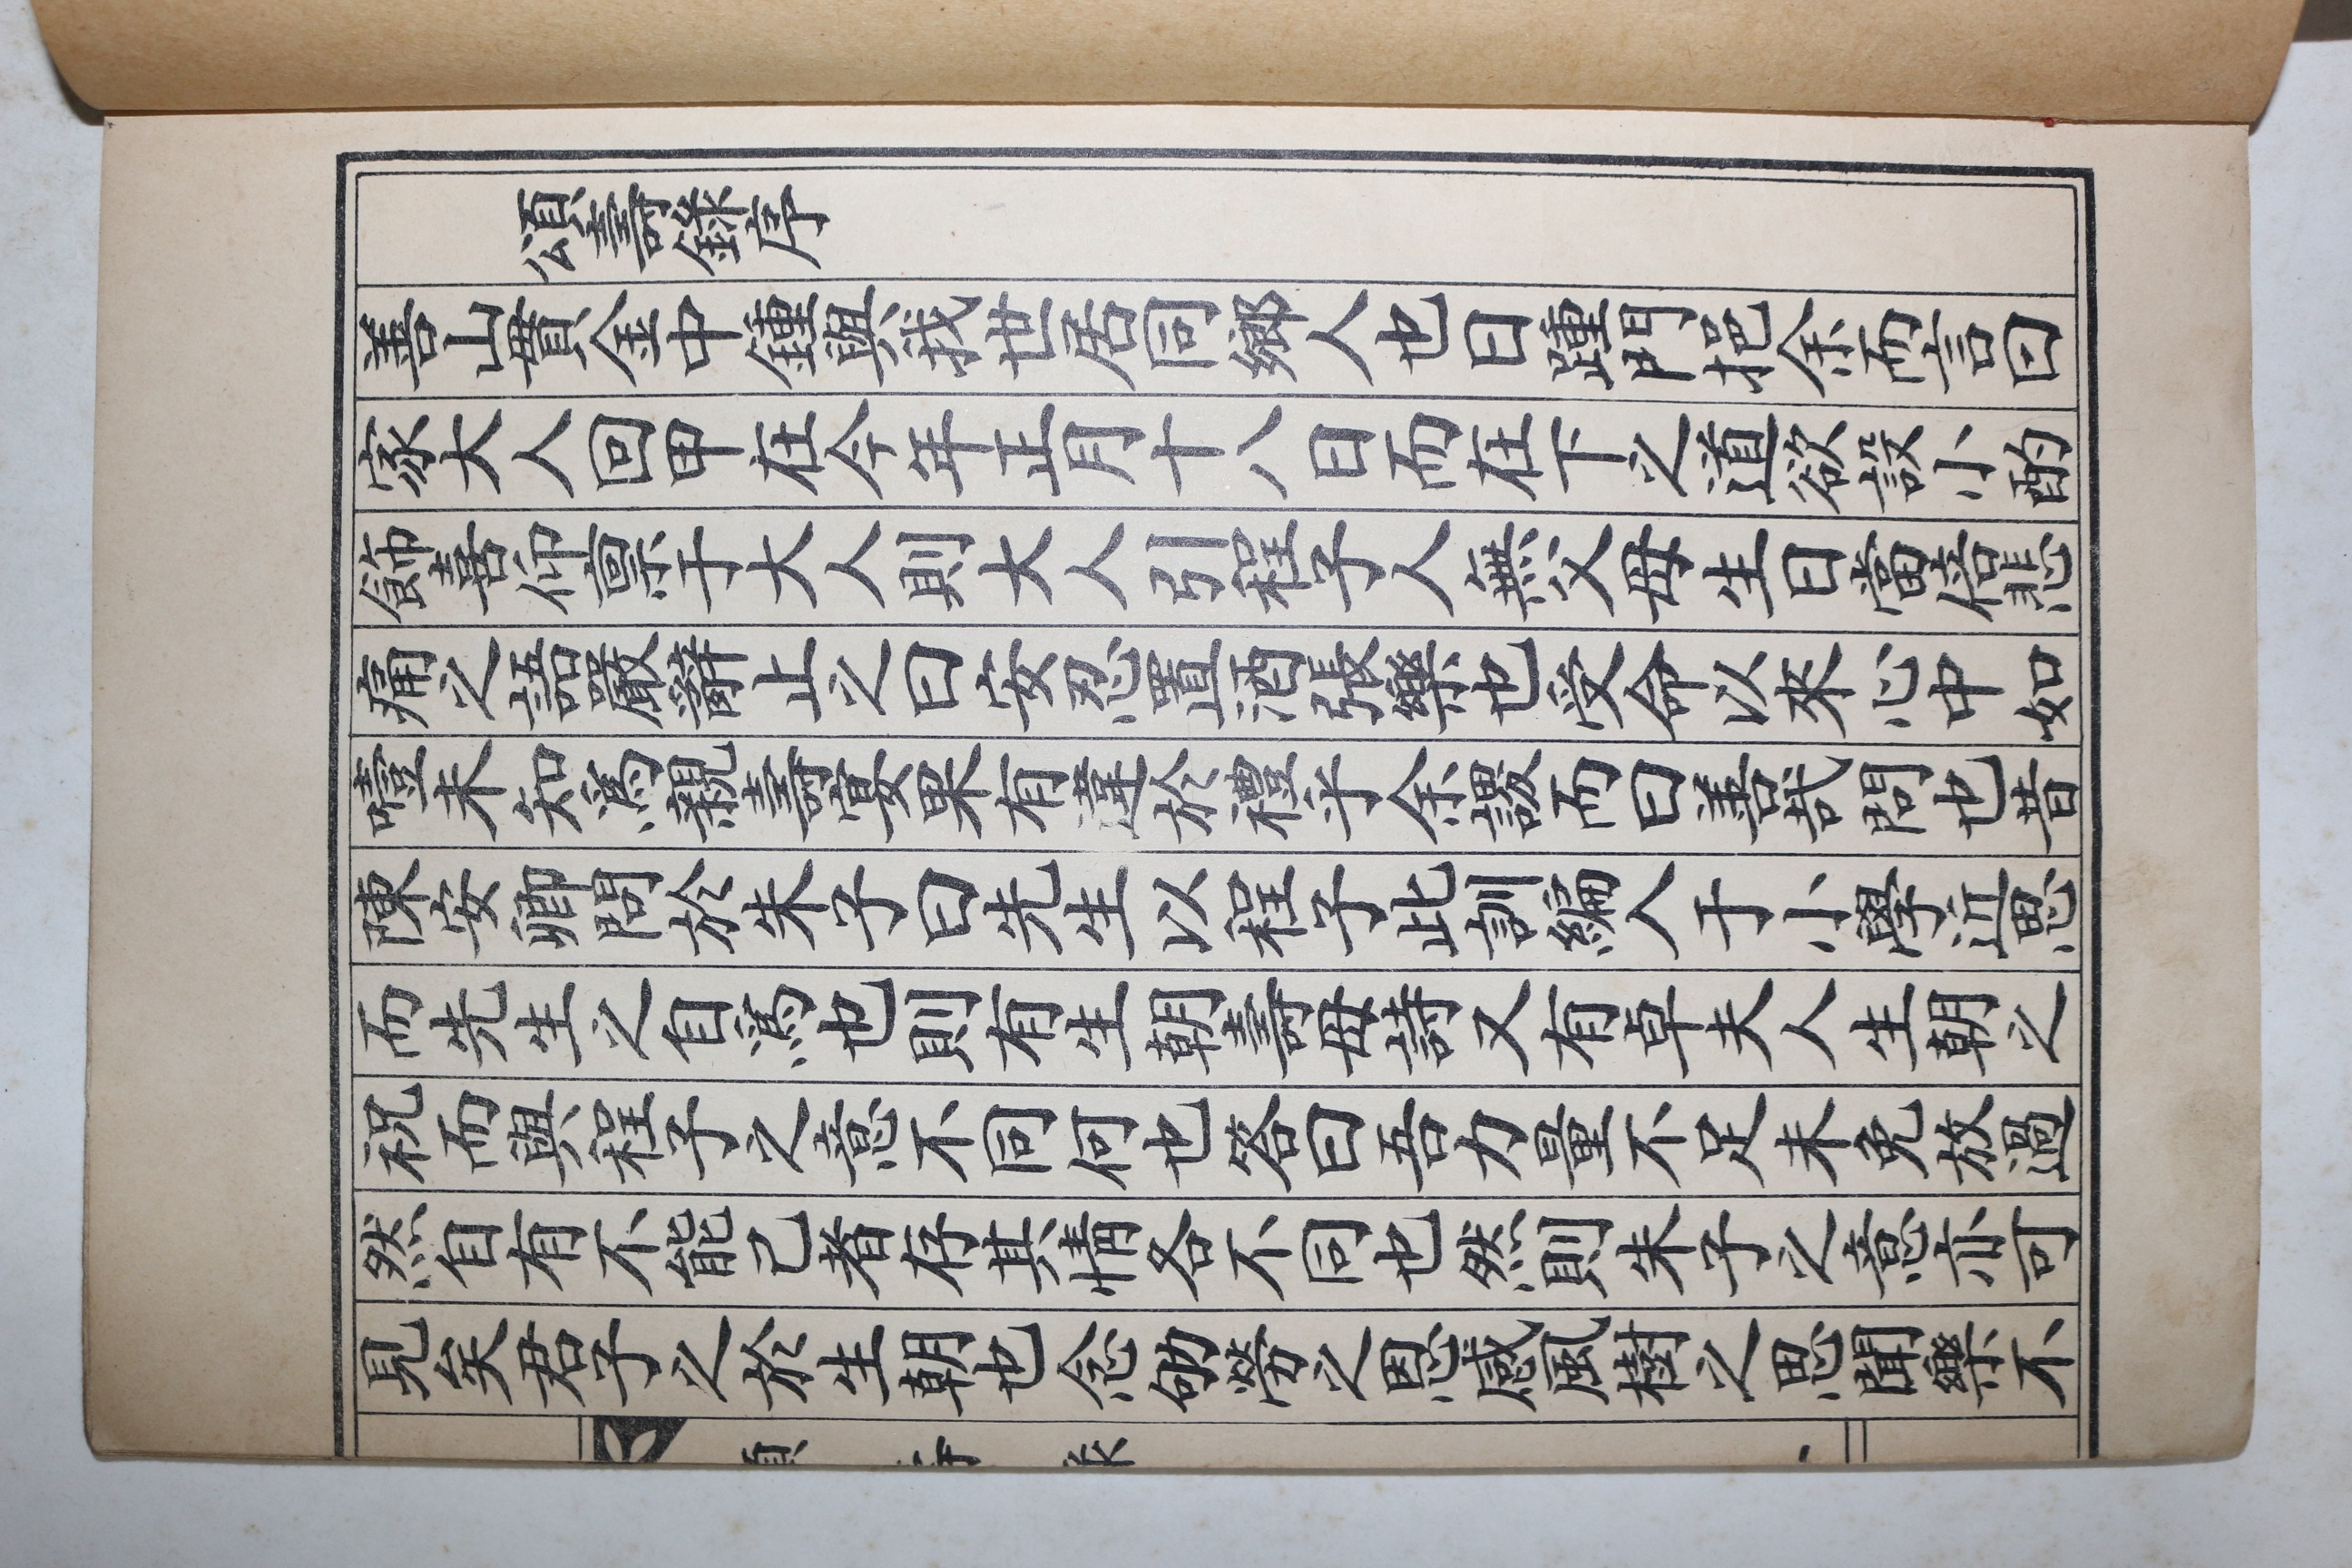 頌壽錄序
善山貫金中鍾與我世居同鄉人也日踵門挹余而言曰
家大人回甲在今年正月十八日而在下之道欲設小酌
飾喜仰禀于大人則大人引程子人無父母生日當倍悲
痛之語嚴辭止之曰安忍置酒張樂也受命以來心中如
噎未知爲親壽宴果有違於禮乎余謖而曰善哉問也昔
陳安卿問於朱子曰先生以程子此訓編入于小學近思
而先生之自爲也則有生朝壽母詩又有卓夫人生朝之
祝而與程子之意不同何也答曰吾力量不足未免放過
然自有不能己者存其情各不同也然則朱子之意亦可
見矣君子之於生朝也念劬勞之恩感風樹之思聞樂不